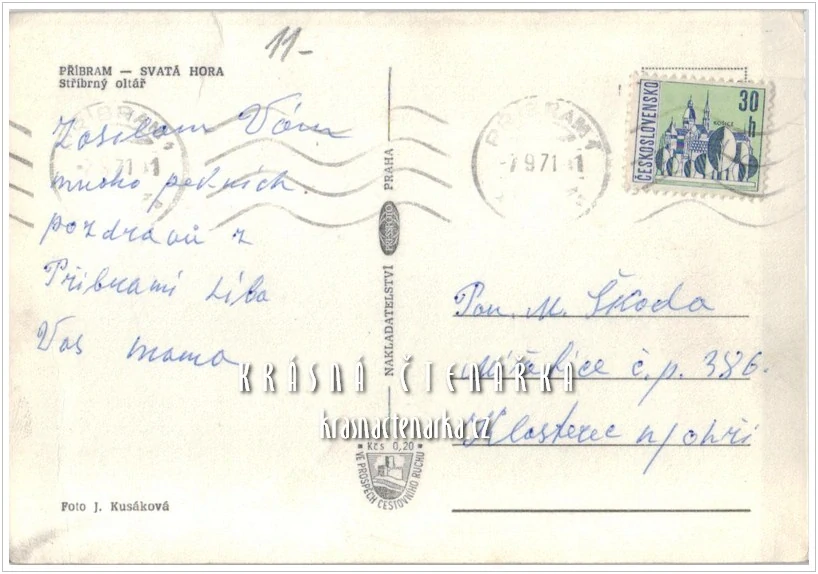 11-
PŘÍBRAM — SVATÁ HORA
Stříbrný oltář
Zasílam Vám
mucho pekních
pozdravů z
Příbrami líba
Vas mama
PŘÍBRAM 1
-7.9.71
PŘÍBRAM 1
-7.9.71
NAKLADATELSTVÍ PRESSFOTO PRAHA
Kčs 0,20
VE PROSPĚCH CESTOVNÍHO RUCHU
ČESKOSLOVENSKO
30 h
KOŠICE
Pan. M. Škoda
č.p. 386.
Klasterec n/ohří
KRÁSNÁ ČTENÁRKA
krasnactenarka.cz
Foto J. Kusáková